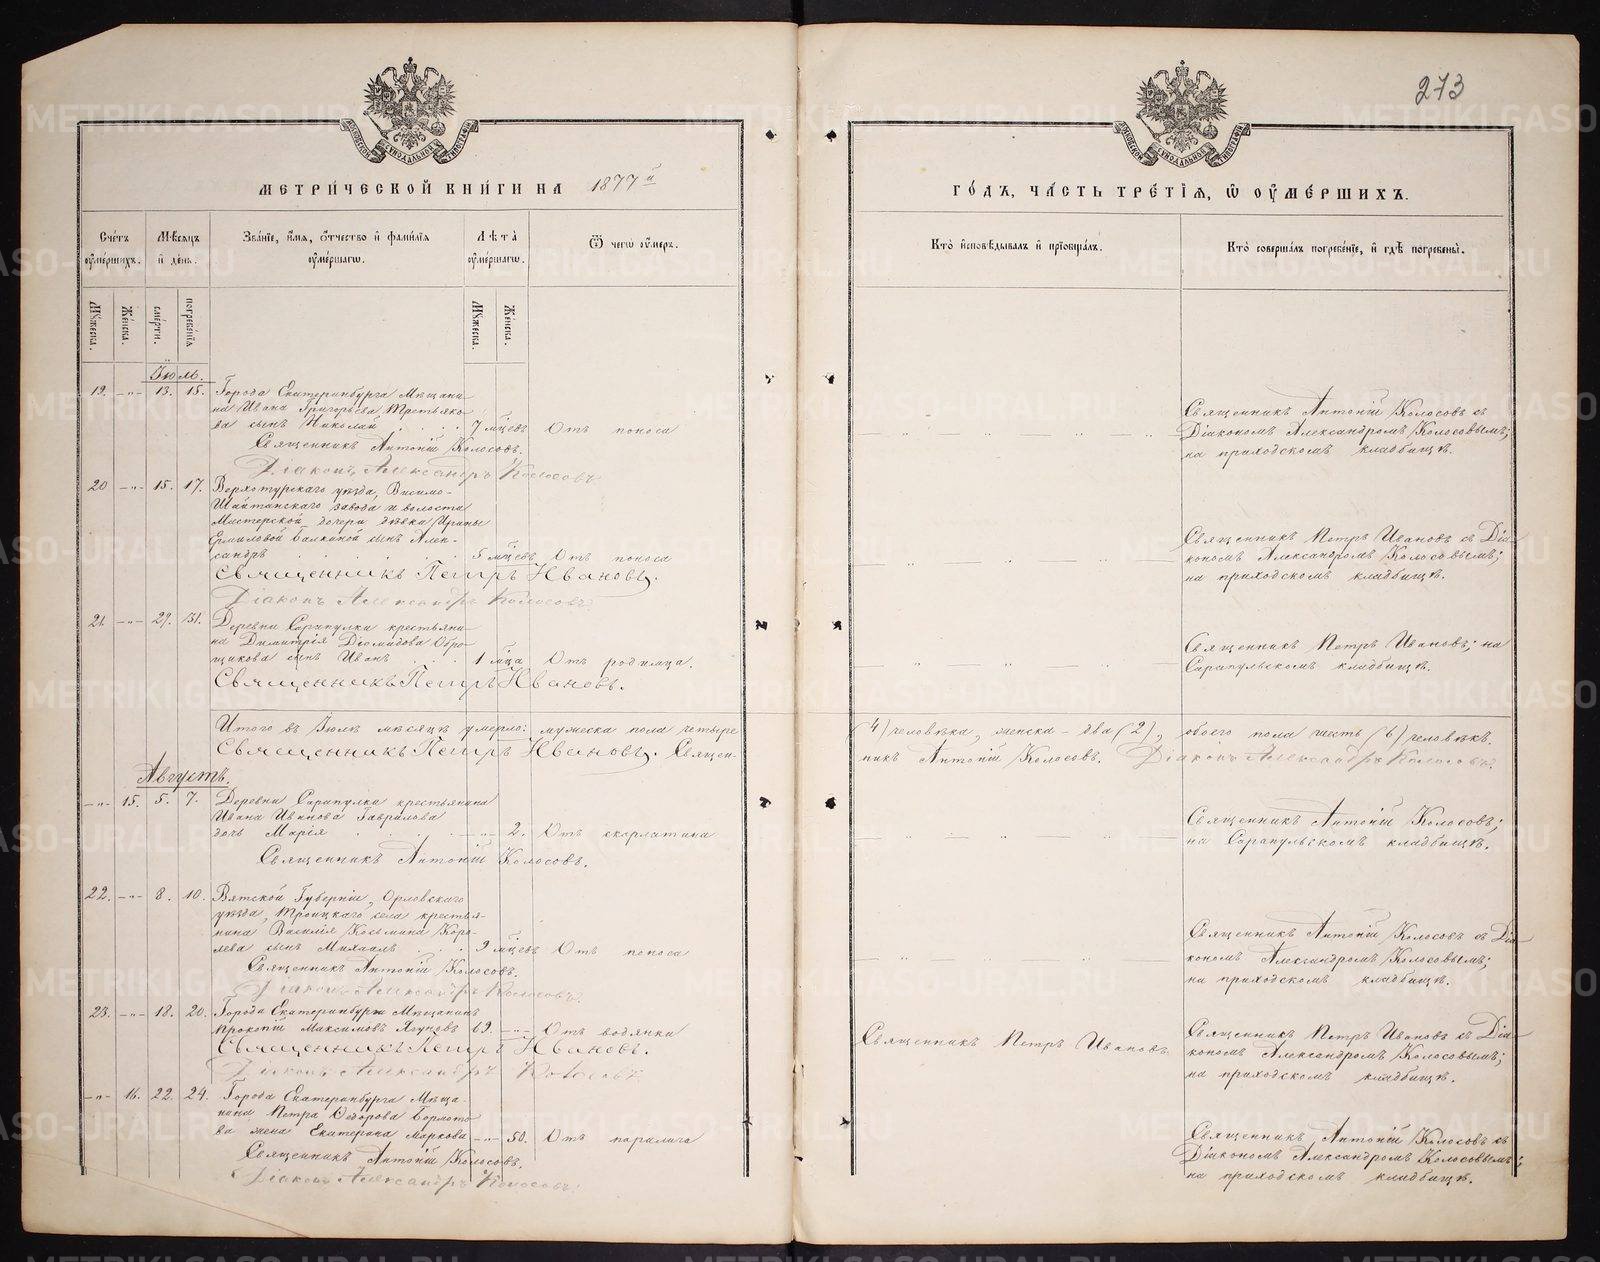 273
МЕТРИ́ЧЕСКОЙ КНИ́ГИ НА 1877й
ГО́ДЪ, ЧА́СТЬ ТРЕ́ТІЯ, Ѿ ОУМЕ́РШИХЪ.
Сче́тъ оуме́ршихъ.
Мѣ́сяцъ и де́нь.
Зва́ніе, и́мя, о́тчество и фами́лія оуме́ршагѡ.
Лѣ́та оуме́ршагѡ.
Ѿ чегѡ̀ оу́меръ.
Кто̀ исповѣ́дывалъ и пріобща́лъ.
Кто̀ соверша́лъ погребе́ніе, и гдѣ̀ погребены̀.
Му́жеска.
Же́нска.
сме́рти.
погребе́нія
Му́жеска.
Же́нска.
Іюль.
19. —"— 13. 15. Города Екатеринбурга Мѣщани-
на Ивана Григорьева Третьяко-
ва сынъ Николай . . . . 7 мцевъ Отъ поноса
Священникъ Антоній Колосовъ.
Діаконъ Александръ Колосовъ.
Священникъ Антоній Колосовъ съ
Діакономъ Александромъ Колосовымъ;
на приходскомъ кладбищѣ.
20 —"— 15. 17. Верхотурскаго уѣзда, Висимо-
Шайтанскаго завода и волости
Мастерской дочери дѣвки Ирины
Ермиловой Балкиной сынъ Алек-
сандръ . . . . 5 мцевъ Отъ поноса
Священникъ Петръ Ивановъ.
Діаконъ Александръ Колосовъ
Священникъ Петръ Ивановъ съ Діа-
кономъ Александромъ Колосовымъ;
на приходскомъ кладбищѣ.
21. —"— 29. 31. Деревни Сарапулки крестьяни-
на Димитрія Діомидова Обро-
щикова сынъ Иванъ . . . 1 мца Отъ родимца.
Священникъ Петръ Ивановъ.
Священникъ Петръ Ивановъ; на
Сарапульскомъ кладбищѣ.
Итого въ Іюлѣ мѣсяцѣ умерло: мужеска пола четыре
(4) человѣка, женска – два (2), обоего пола шесть (6) человѣкъ.
Священникъ Петръ Ивановъ. Священ-
никъ Антоній Колосовъ. Діаконъ Александръ Колосовъ.
Августъ.
—"— 15. 5. 7. Деревни Сарапулки крестьянина
Ивана Иванова Гаврилова
дочь Марія . . . . —"— 2. Отъ скарлатина
Священникъ Антоній Колосовъ.
Священникъ Антоній Колосовъ;
на Сарапульскомъ кладбищѣ.
22. —"— 8. 10. Вятской Губерніи, Орловскаго
уѣзда, Троицкаго села крестья-
нина Василія Косьмина Коро-
лева сынъ Михаилъ . . . 9 мцевъ Отъ поноса
Священникъ Антоній Колосовъ.
Діаконъ Александръ Колосовъ.
Священникъ Антоній Колосовъ съ Діа-
кономъ Александромъ Колосовымъ;
на приходскомъ кладбищѣ.
23. —"— 18. 20. Города Екатеринбурга Мѣщанинъ
Прокопій Максимовъ Ягуновъ 69. —"— Отъ водянки
Священникъ Петръ Ивановъ.
Діаконъ Александръ Колосовъ.
Священникъ Петръ Ивановъ.
Священникъ Петръ Ивановъ съ Діа-
кономъ Александромъ Колосовымъ;
на приходскомъ кладбищѣ.
—"— 16. 22. 24. Города Екатеринбурга Мѣща-
нина Петра Ѳедорова Бормото-
ва жена Екатерина Маркова —"— 50. Отъ паралича
Священникъ Антоній Колосовъ.
Діаконъ Александръ Колосовъ.
Священникъ Антоній Колосовъ съ
Діакономъ Александромъ Колосовымъ;
на приходскомъ кладбищѣ.